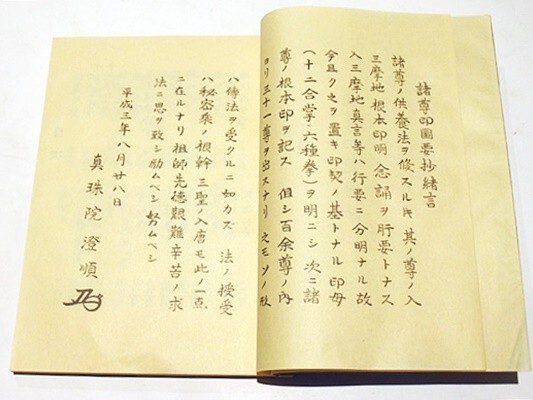 諸尊印圖要抄緒言
諸尊ノ供養法ヲ修スルニ其ノ尊ノ入
三摩地根本印明 念誦ヲ肝要トナス
入三摩地真言等ハ行要ニ分明ナル故
今且ク之ヲ置キ印契ノ基トナル印母
(十二合掌 六種拳)ヲ明ニシ 次ニ諸
尊ノ根本印ヲ記ス 但シ百余尊ノ内
ヨリ三十一尊ヲ出スナリ 之モソノ秘
ハ傳法ヲ受クルニ如カズ 法ノ授受
ハ秘密乘ノ根幹 三聖ノ入唐モ此ノ一点
ニ在ルナリ 祖師先徳艱難辛苦ノ求
法ニ思ヲ致シ励ムベシ 努ムベシ
平成三年八月廿八日
真珠院 澄順